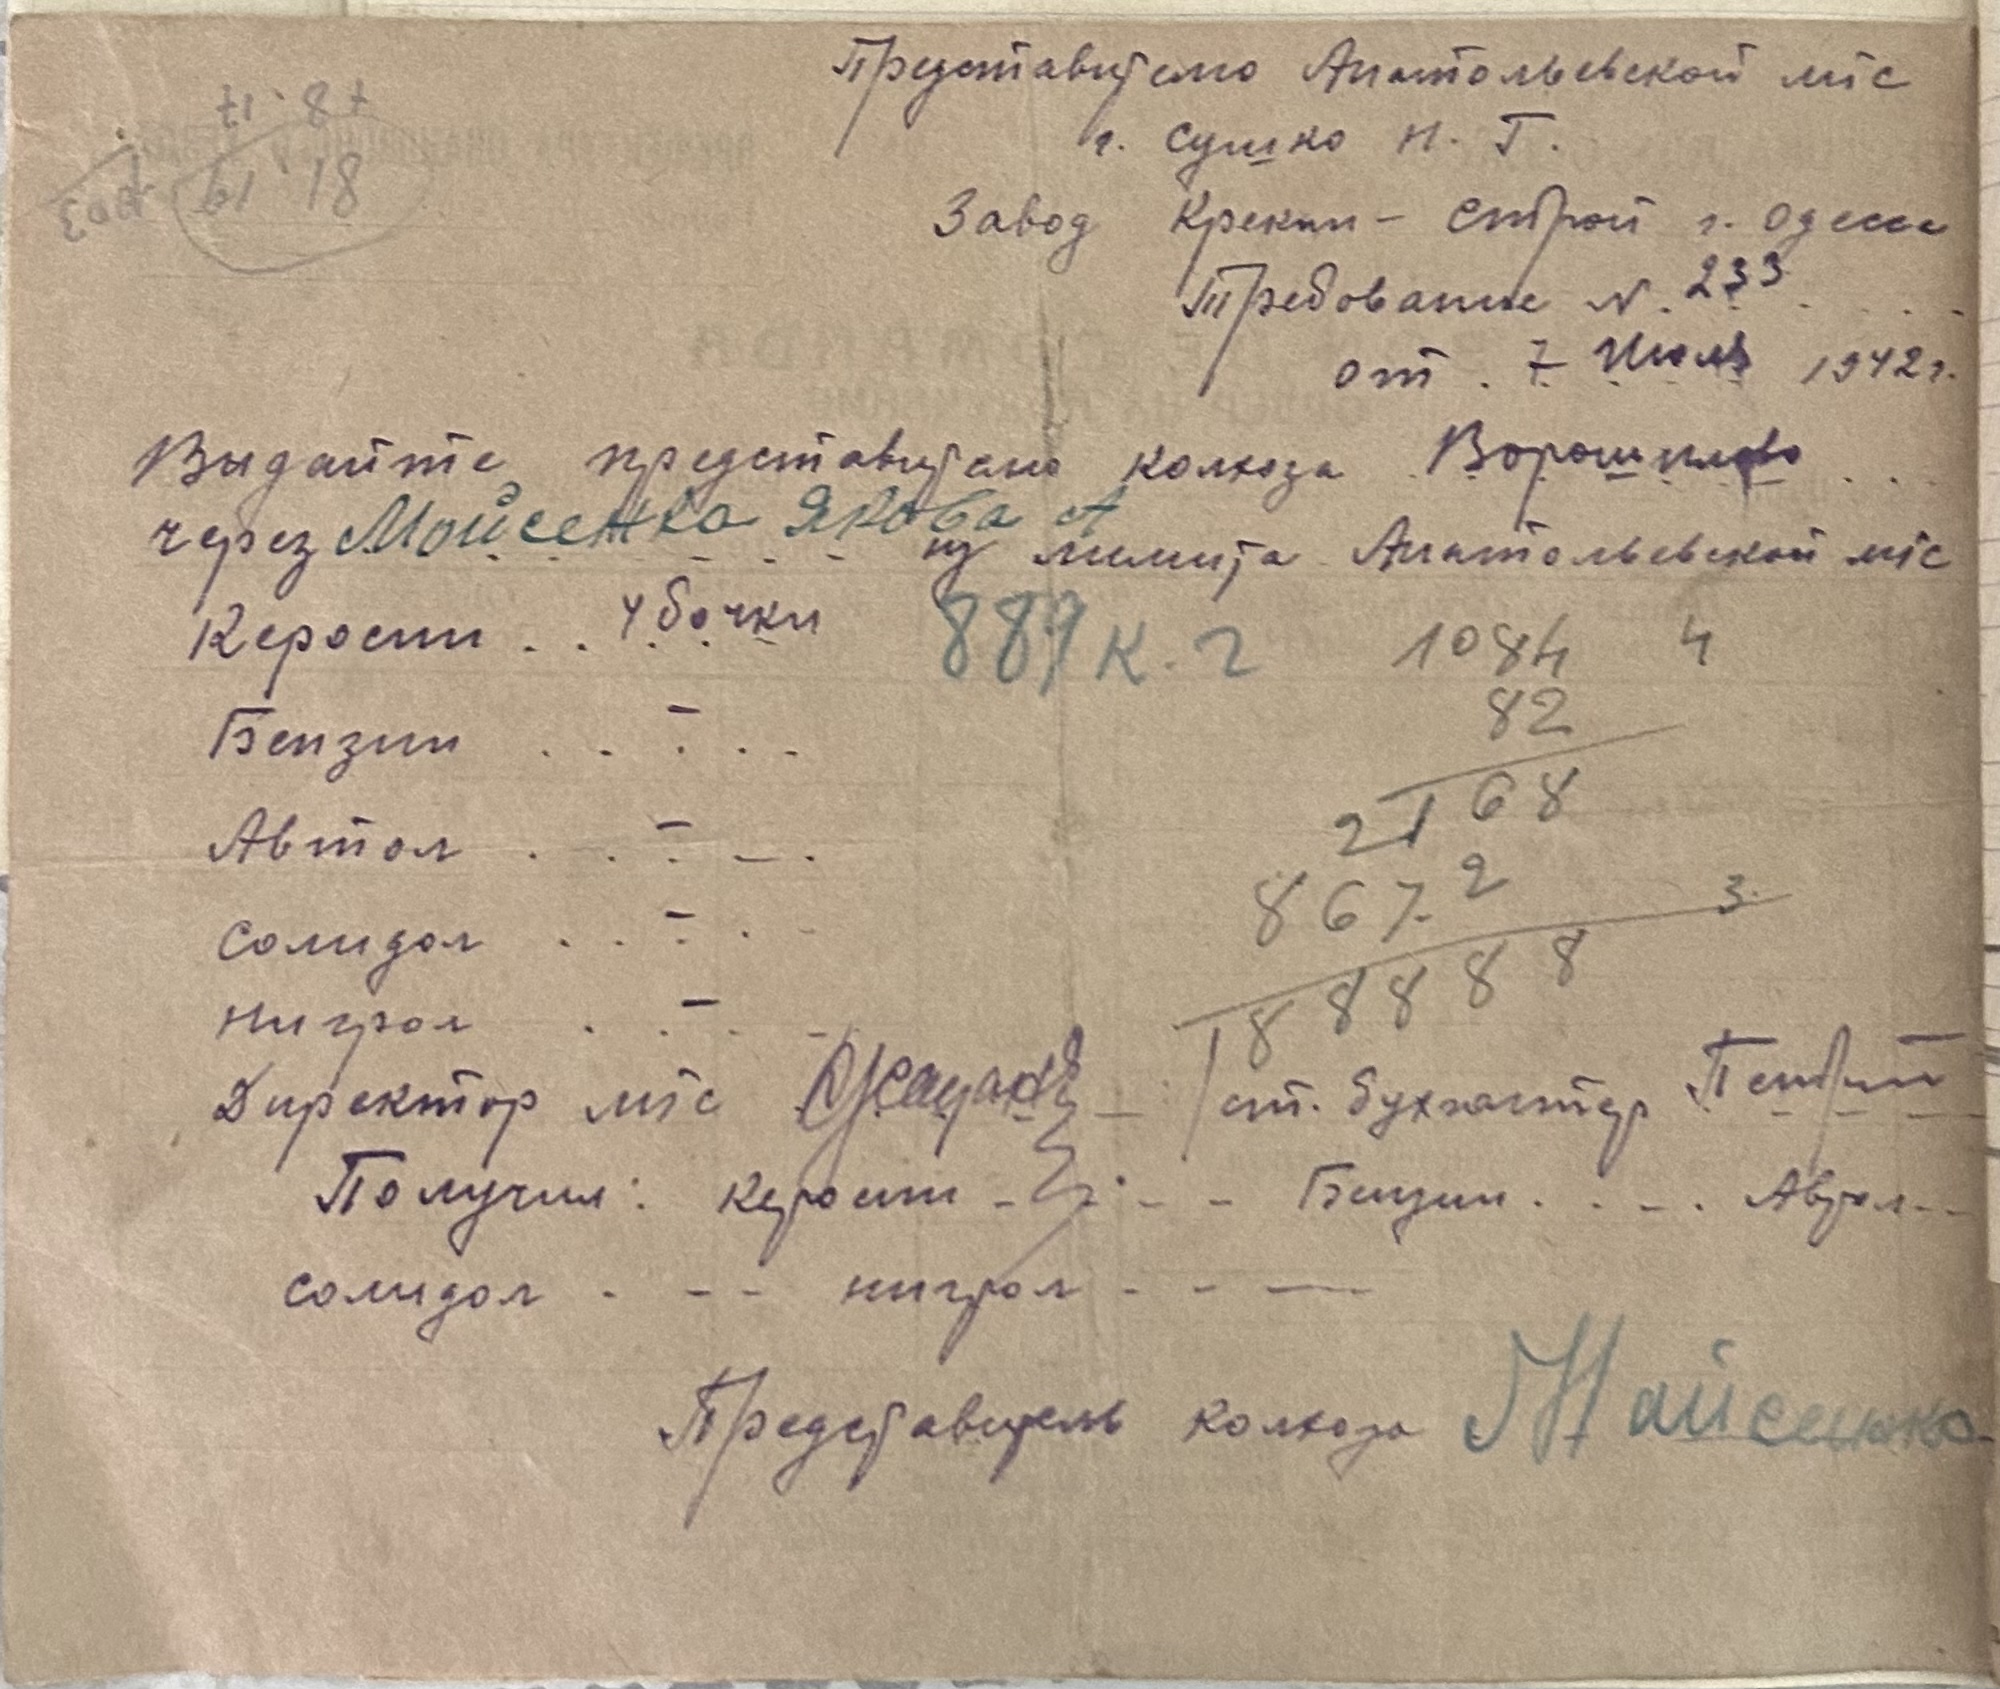 Представителю Анатольевской мтс
г. Сушко Н. Г.
Завод Крекин-Строй г. Одесса
Требование N. 233
от. 7 Июль 1942 г.
Выдайте представителю колхоза Ворошилова
через Мойсенка Якова А из лимита Анатольевской мтс
Керосин . . 4 бочки 889 к. г 1084 4
82
Бензин . . - . .
2168
Автол . . - . .
8672 3
Солидол . . - . .
18 8888
Нигрол . . - .
Директор мтс ст. Бухгалтер
Получил: Керосин - - - Бензин . . - . Автол - -
солидол - - - нигрол - - -
Представитель колхоза Мойсенко